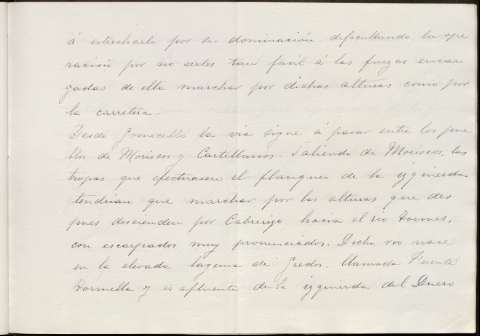 á estrecharle por su dominación dificultando la ope
ración por no serles tan fácil á las fuerzas encar
gadas de ella marchar por dichas alturas como por
la carretera.
Desde la via sigue á pasar entre los pue
blos de Moriscos y Castellanos. Saliendo de Moriscos, las
tropas que efectuasen el flanqueo de la izquierda
tendrian que marchar por las alturas que des
pues descienden por Cabrerizo hacia el rio Tormes,
con escarpados muy pronunciados. Dicho rio nace
en la elevada laguna de Gredos, llamada Fuente
Tormella y es afluente de la izquierda del Duero